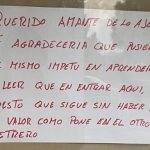 QUERIDO AMANTE DE LO AJE
AGRADECERIA QUE PUSIE
MISMO IMPETU EN APRENDER
LEER QUE EN ENTRAR AQUI,
ESTO QUE SIGUE SIN HABER
VALOR COMO PONE EN EL OTRO
ETRERO